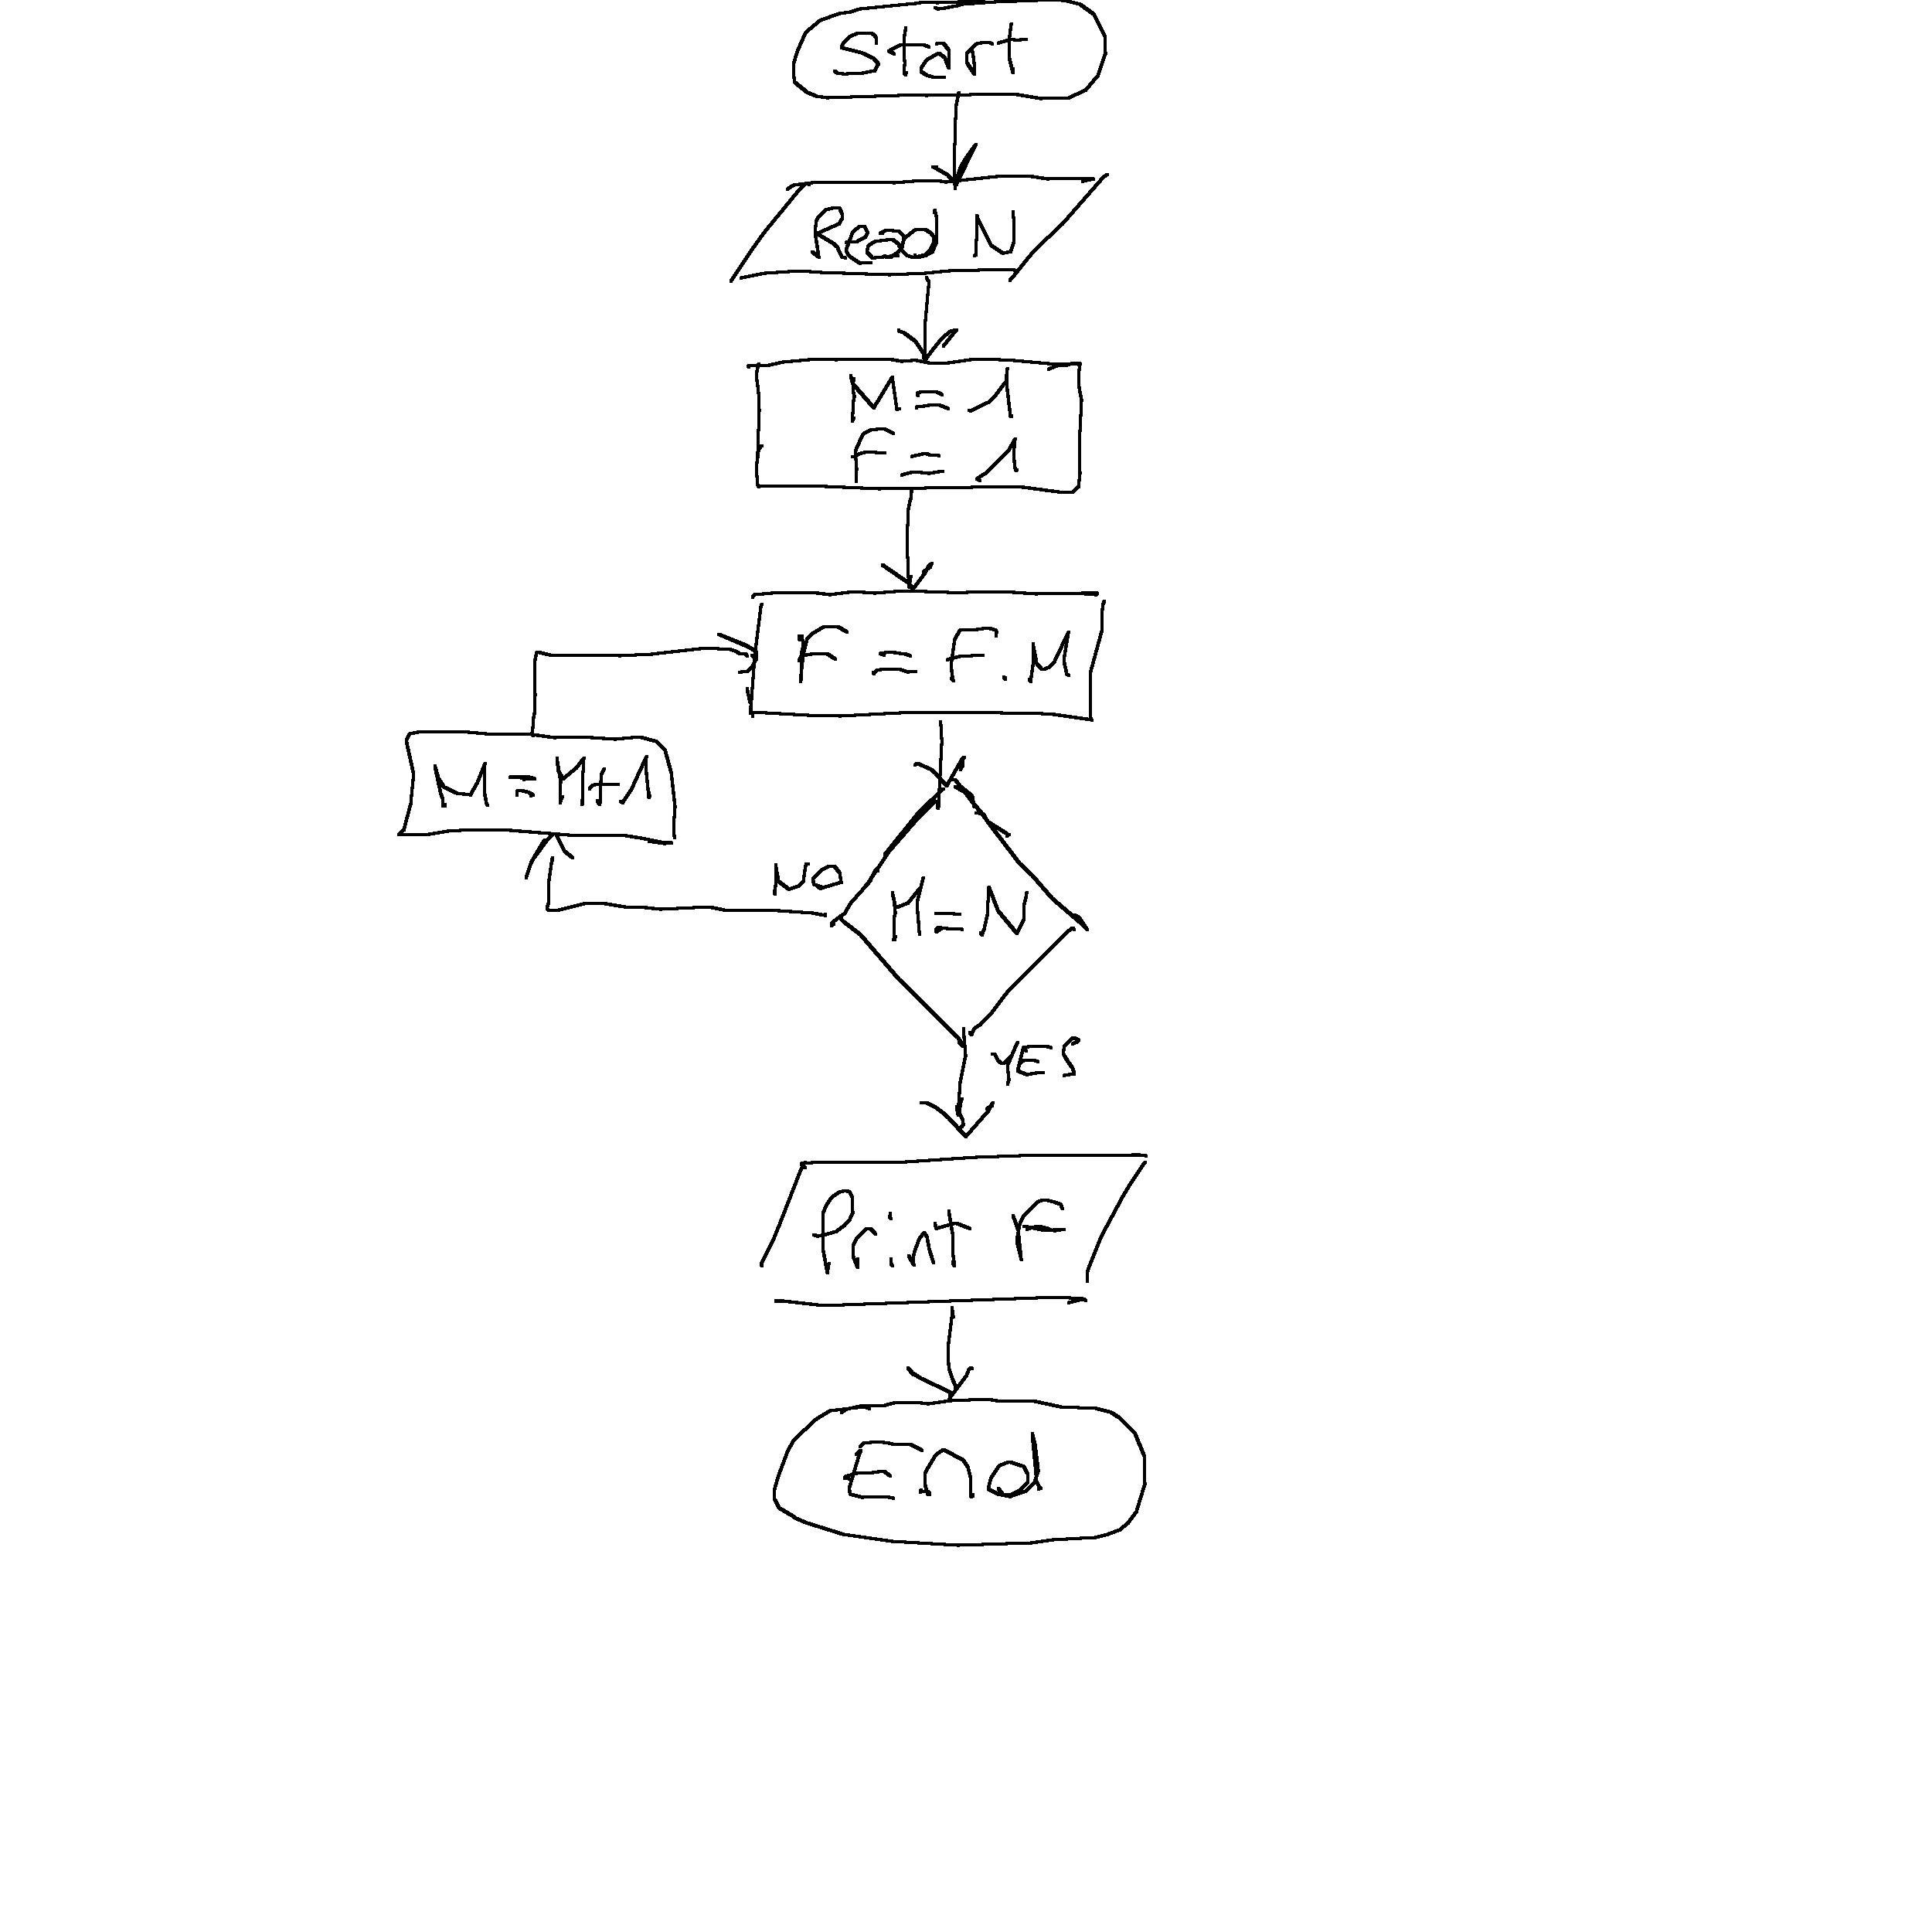 Start
Read N
M = 1
F = 1
F = F.M
M = M+1
NO
M = N
YES
Print F
End